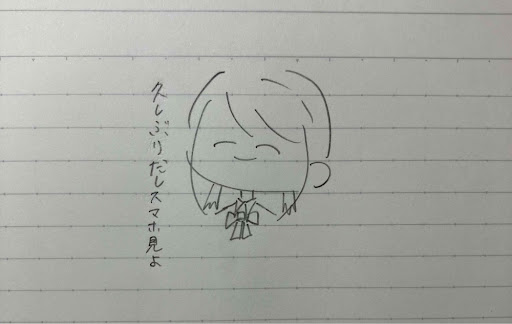 久しぶりだしスマホ見よ